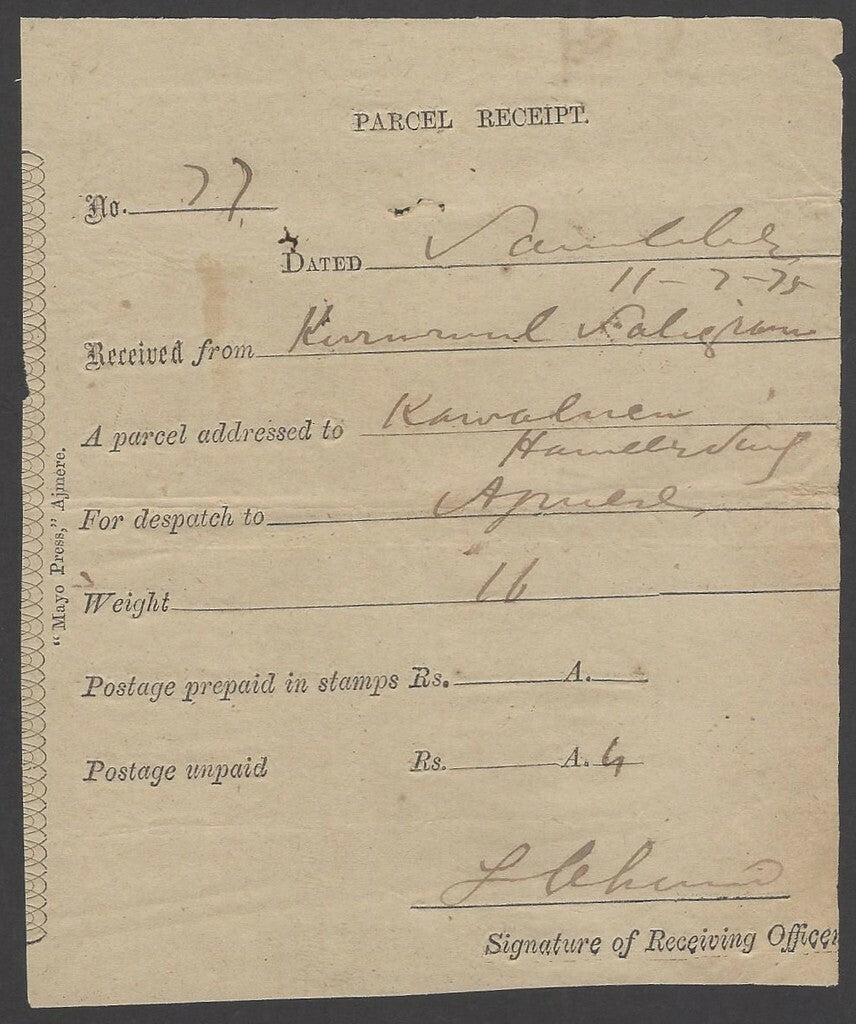 PARCEL RECEIPT.
No. 77
DATED
11-7-75
Received from Saligram
A parcel addressed to
For despatch to Ajmere
Weight 16
Postage prepaid in stamps Rs. A.
Postage unpaid Rs. A. 4
Signature of Receiving Officer
"Mayo Press," Ajmere.